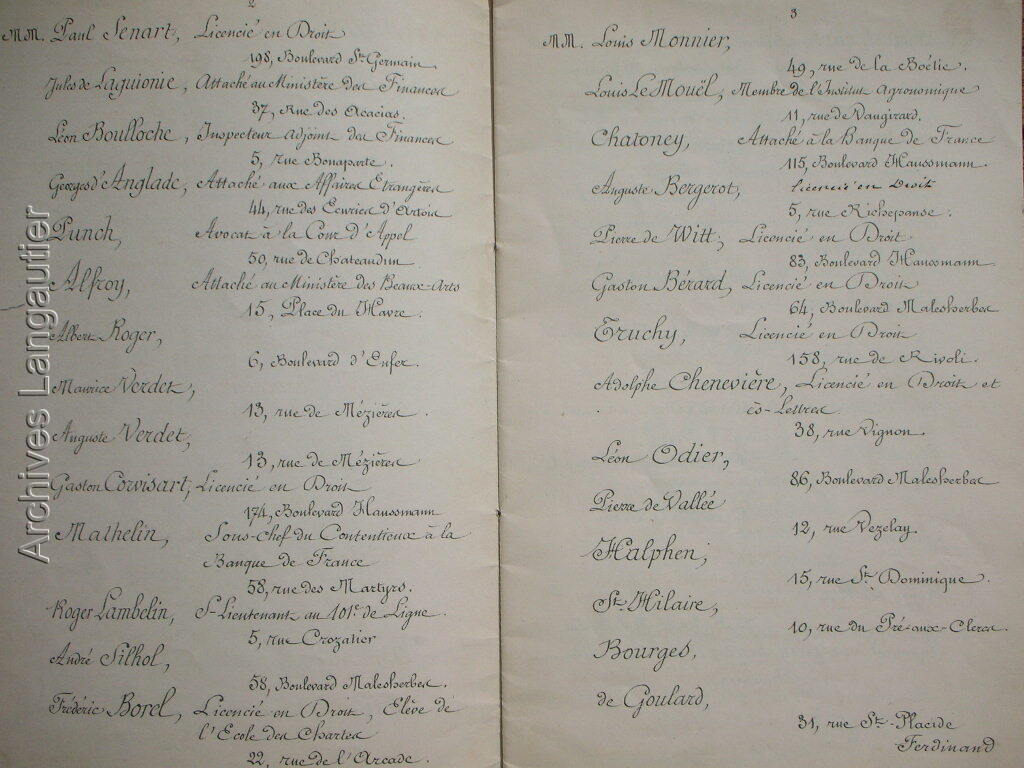 2
MM. Paul Senart, Licencié en Droit
198, Boulevard St Germain
Jules de Laguionie, Attaché au Ministère des Finances
37, Rue des Acacias.
Léon Boulloche, Inspecteur adjoint des Finances
5, rue Bonaparte.
Georges d'Anglade, Attaché aux Affaires Etrangères
44, rue des Ecuries d'Artois
Punch, Avocat à la Cour d'Appel
50, rue de Chateaudun
Alfroy, Attaché au Ministère des Beaux-Arts
15, Place du Havre.
Albert Roger,
6, Boulevard d'Enfer.
Maurice Verdet,
13, rue de Mézières.
Auguste Verdet,
13, rue de Mézières
Gaston Corvisart, Licencié en Droit
174, Boulevard Haussmann
Mathelin, Sous-Chef du Contentieux à la
Banque de France
58, rue des Martyrs.
Roger Lambelin, S-Lieutenant au 101e de Ligne.
5, rue Crozatier
André Silhol,
58, Boulevard Malesherbes.
Frédéric Borel, Licencié en Droit, Elève de
l'Ecole des Chartes
22, rue de l'Arcade.
3
MM. Louis Monnier,
49, rue de la Boëtie.
Louis Le Mouël, Membre de l'Institut Agronomique
11, rue de Vaugirard.
Chatoney, Attaché à la Banque de France
115, Boulevard Haussmann.
Auguste Bergerot, Licencié en Droit
5, rue Richepanse.
Pierre de Witt, Licencié en Droit
83, Boulevard Haussmann
Gaston Bérard, Licencié en Droit
64, Boulevard Malesherbes
Truchy, Licencié en Droit
158, rue de Rivoli.
Adolphe Chenevière, Licencié en Droit et
ès-Lettres
38, rue Vignon.
Léon Odier,
86, Boulevard Malesherbes
Pierre de Vallée
12, rue Vezelay.
Halphen,
15, rue St Dominique.
St Hilaire,
10, rue du Pré-aux-Clercs.
Bourges,
de Goulard,
31, rue St-Placide
Ferdinand
Archives Langautier